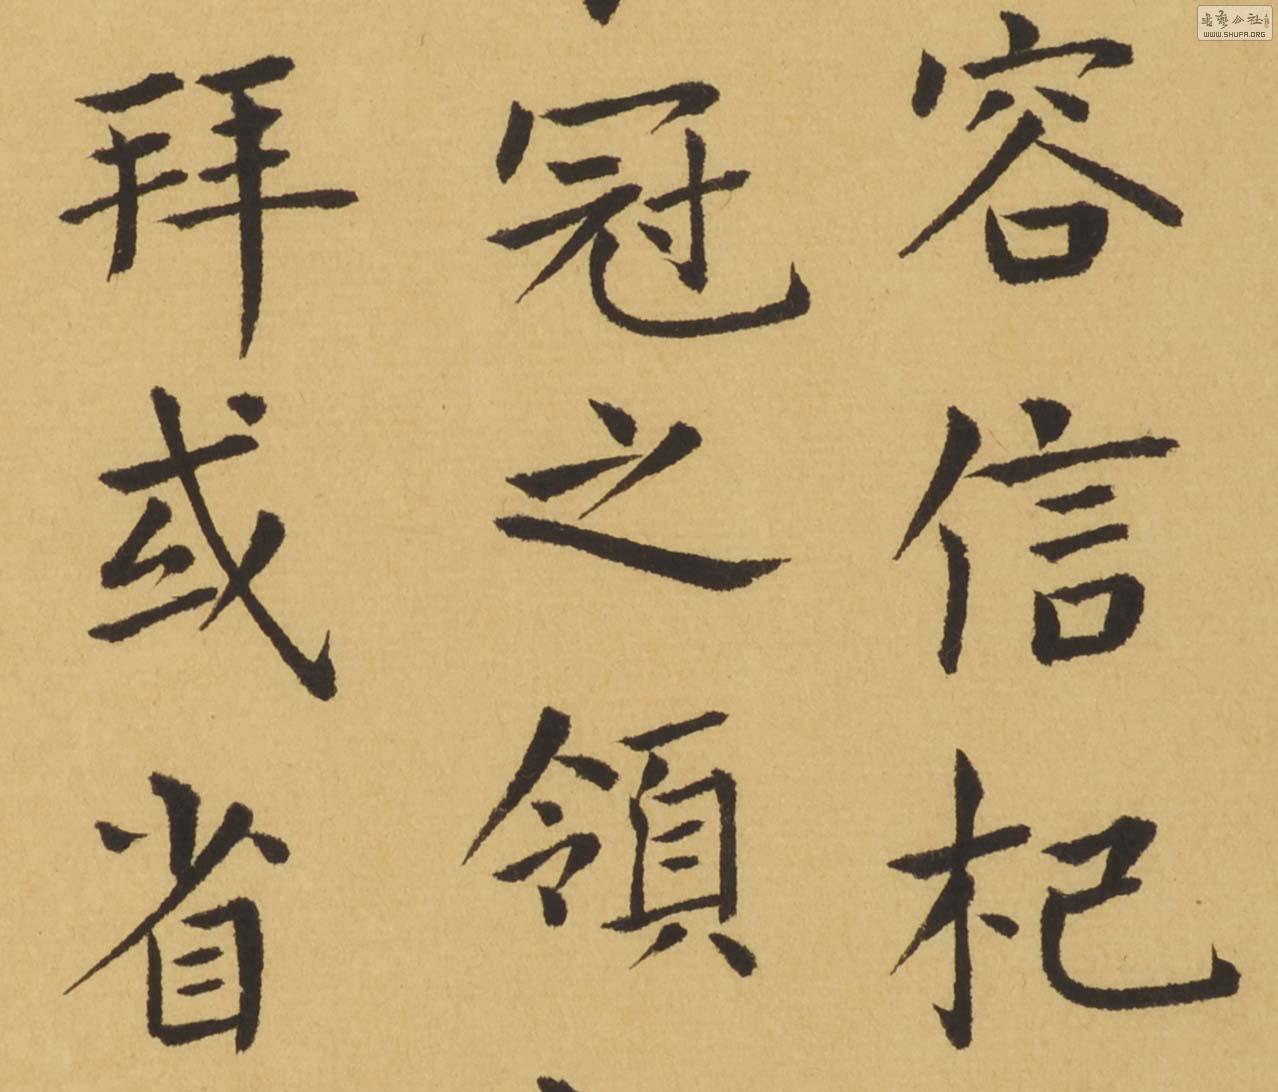 容信杞
冠之領
拜或省
書藝公社
WWW.SHUFA.ORG